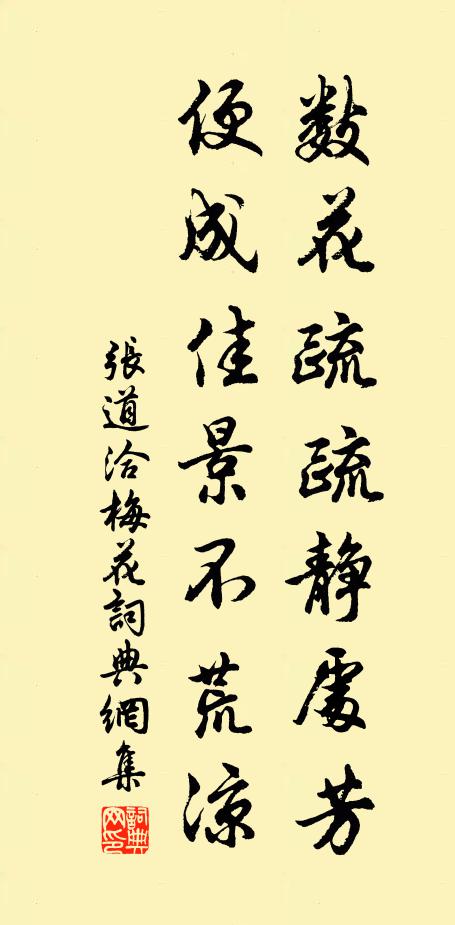 數花疏疏静處芳
便成佳景不荒涼
張道洽梅花詞典網集
詞典網印